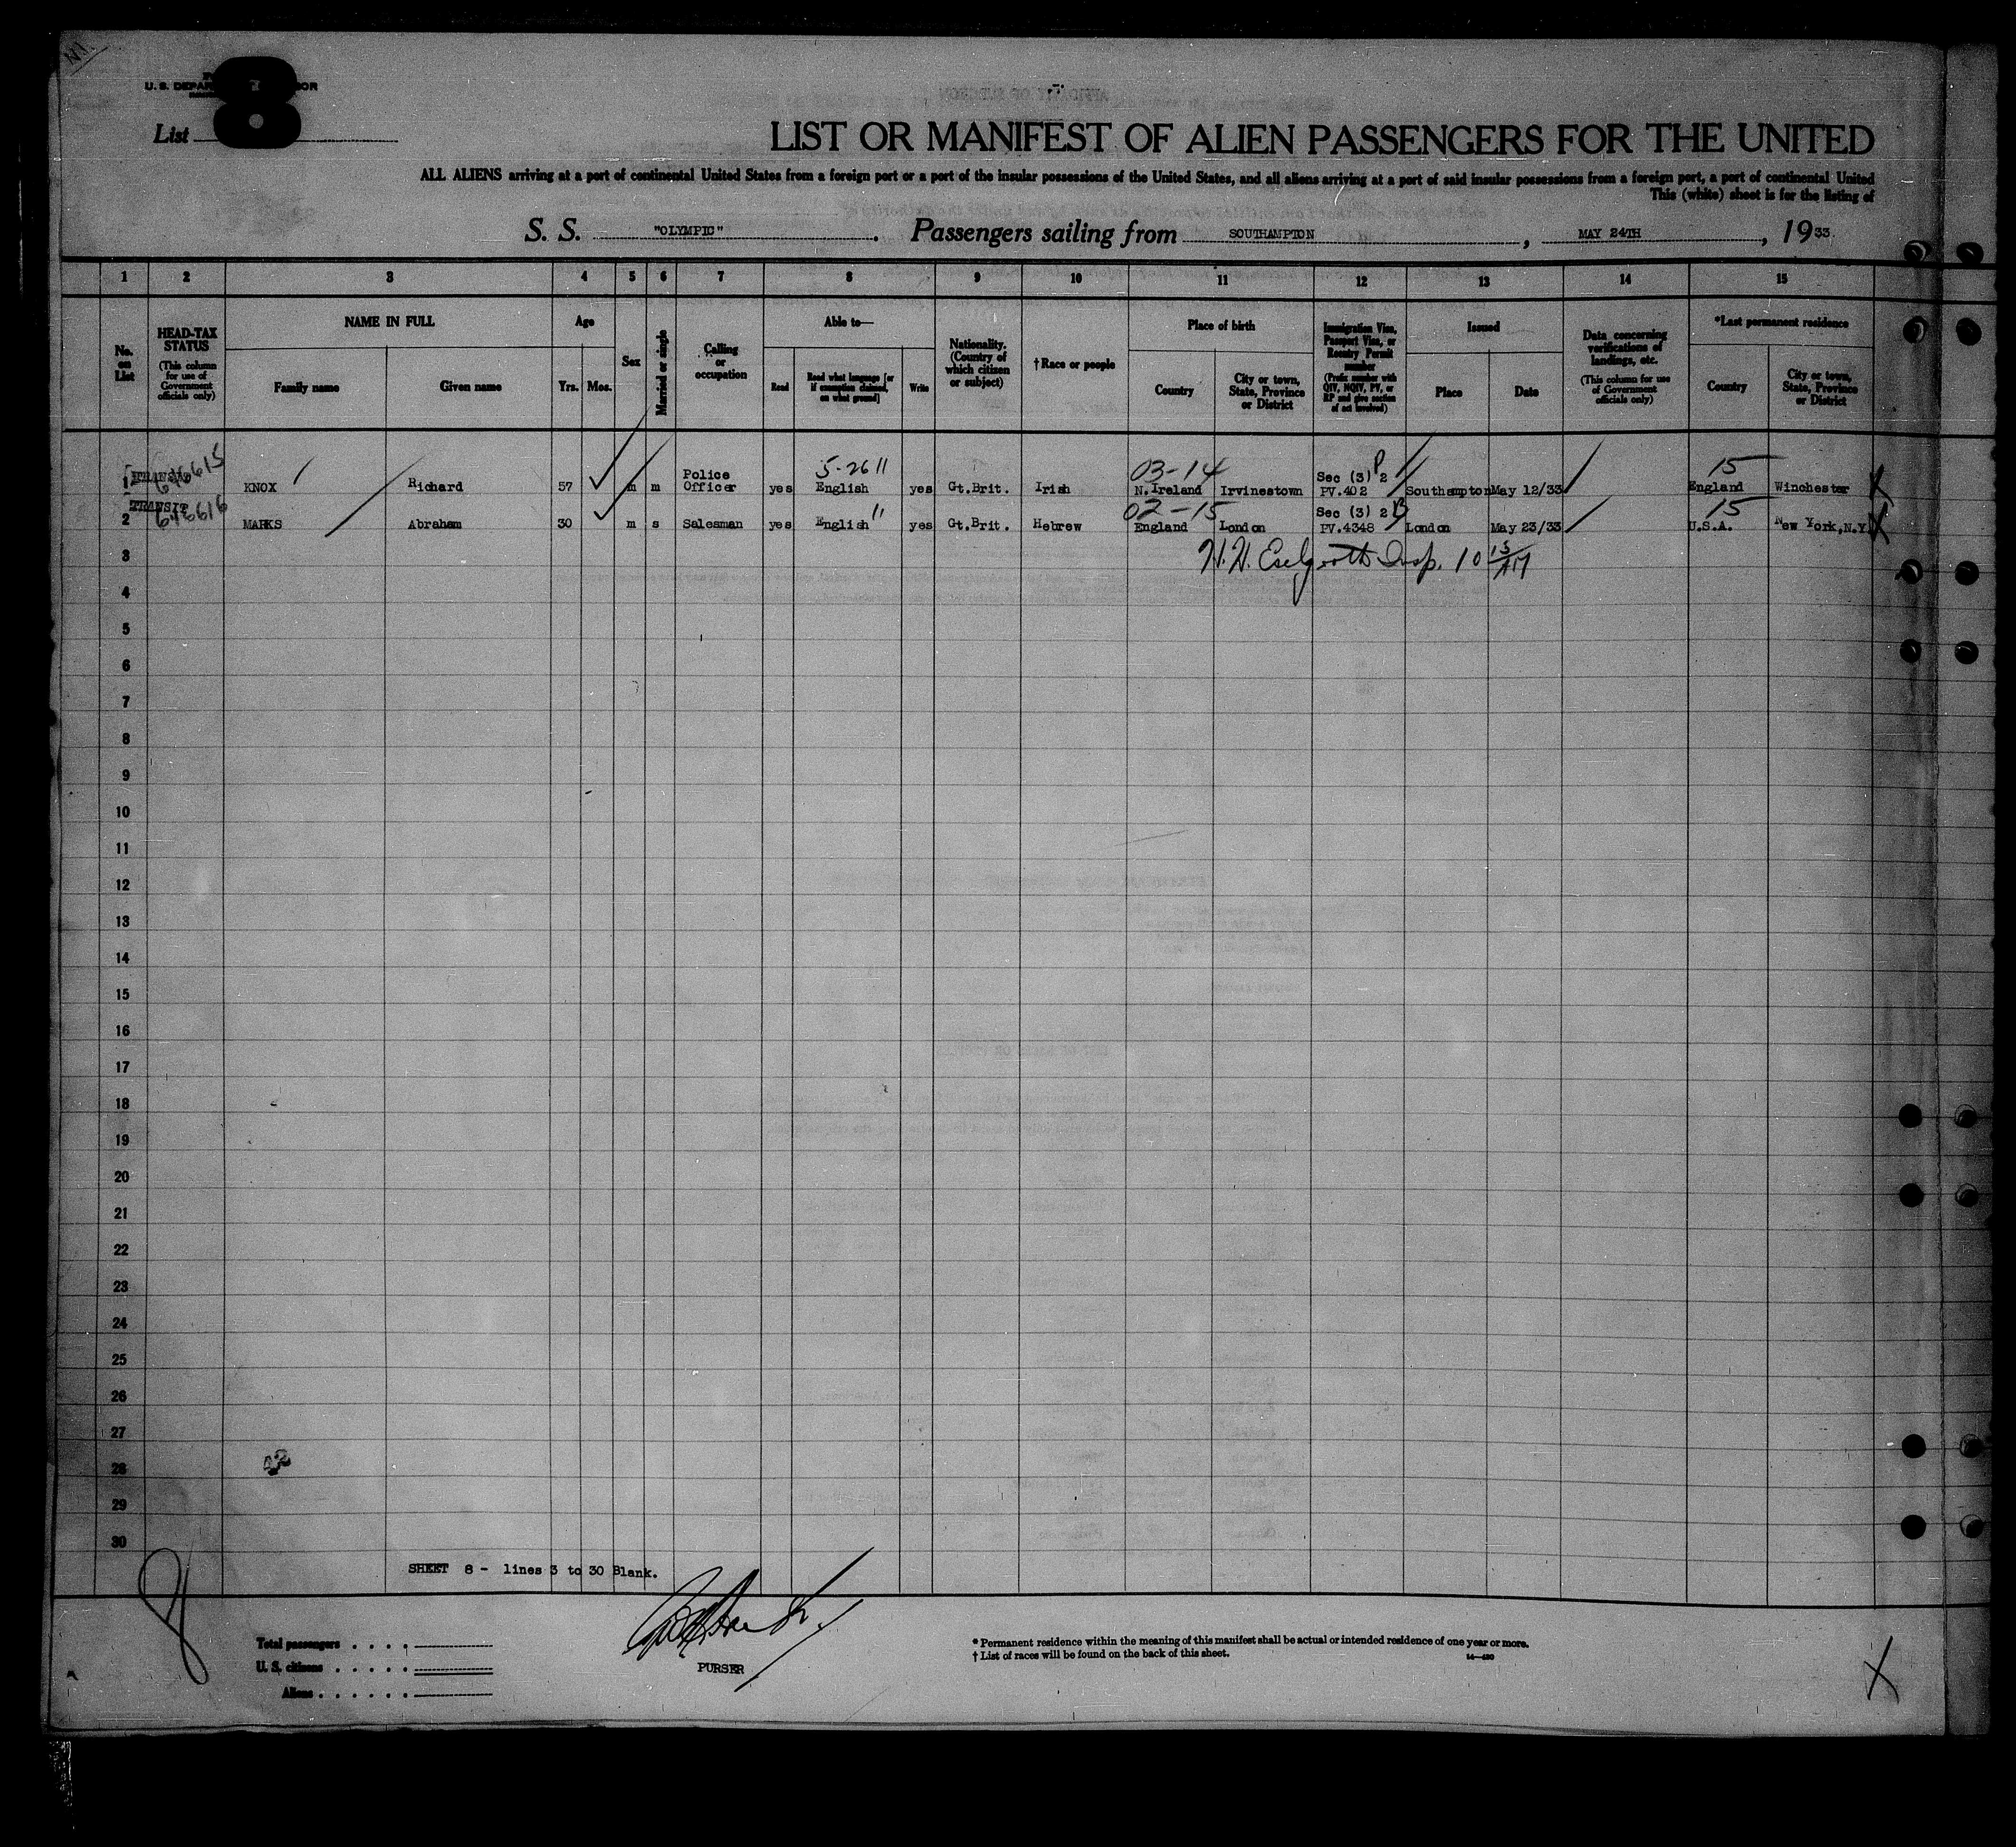 8
U. S. DEPAR
List
LIST OR MANIFEST OF ALIEN PASSENGERS FOR THE UNITED
ALL ALIENS arriving at a port of continental United States from a foreign port or a port of the insular possessions of the United States, and all aliens arriving at a port of said insular possessions from a foreign port, a port of continental United
This (white) sheet is for the listing of
S. S. "OLYMPIC". Passengers sailing from SOUTHAMPTON, MAY 24TH, 1933.
1 2 3 4 5 6 7 8 9 10 11 12 13 14 15
No. on List
HEAD-TAX STATUS
(This column for use of Government officials only)
NAME IN FULL
Family name
Given name
Age
Yrs. Mos.
Sex
Married or single
Calling or occupation
Able to—
Read
Read what language [or if exemption claimed, on what ground]
Write
Nationality. (Country of which citizen or subject)
†Race or people
Place of birth
Country
City or town, State, Province or District
Immigration Visa, Passport Visa, or Reentry Permit number
(Prefix number with QIV, NQIV, PV, or RP and give section of act involved)
Issued
Place
Date
Data concerning verifications of landings, etc.
(This column for use of Government officials only)
*Last permanent residence
Country
City or town, State, Province or District
5-26 11 03-14 15
1 TRANSIT 646615 KNOX Richard 57 m m Police Officer yes English yes Gt.Brit. Irish N.Ireland Irvinestown Sec (3) 2 PV.402 Southampton May 12/33 England Winchester
02-15 15
2 TRANSIT 646616 MARKS Abraham 30 m s Salesman yes English 11 yes Gt.Brit. Hebrew England London Sec (3) 2 PV.4348 London May 23/33 U.S.A. New York,N.Y.
3
4
5
6
7
8
9
10
11
12
13
14
15
16
17
18
19
20
21
22
23
24
25
26
27
28
29
30
SHEET 8 - lines 3 to 30 Blank.
8
PURSER
Total passengers
U. S. citizens
Aliens
* Permanent residence within the meaning of this manifest shall be actual or intended residence of one year or more.
† List of races will be found on the back of this sheet.
14—430